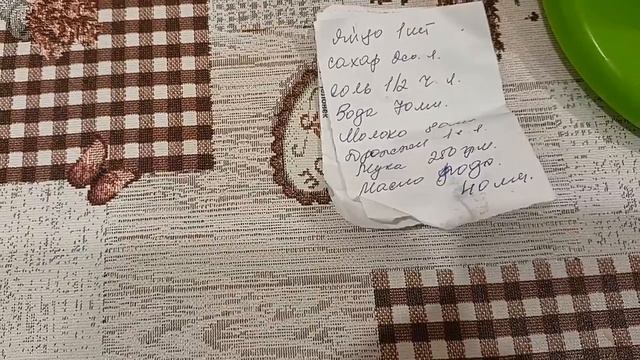 яйцо 1шт
сахар 2ст. л.
соль 1/2 ч. л.
Вода 70мл.
Молоко 80мл
1 ч л.
Мука 280грм.
Масло
40 мл.